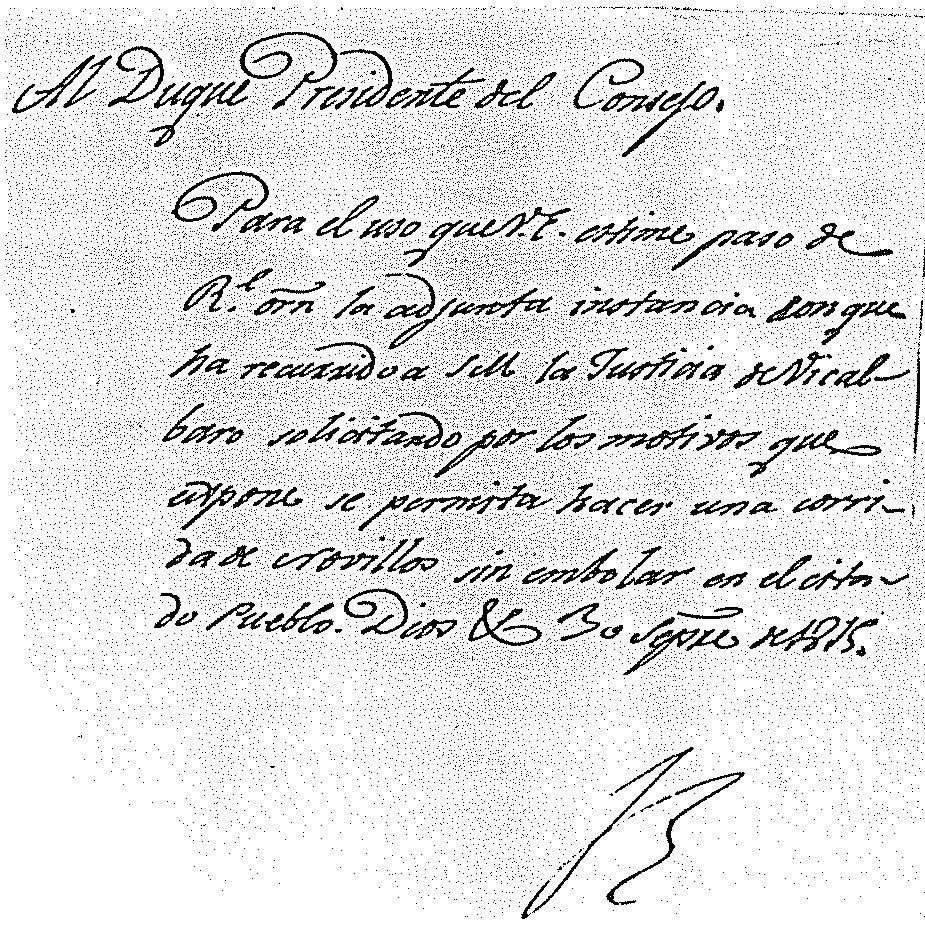 Al Duque Presidente del Consejo.
Para el uso que V.E. estime paso de
R.l orn la adjunta instancia con que
ha recurrido a SM la Justicia de Vical-
baro solicitando por los motivos que
expone se permita hacer una corri-
da de Novillos sin embolar en el cita-
do Pueblo. Dios &c 30 Sepre de 1815.